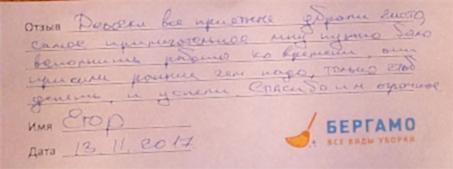 Отзыв Девочки все приятные убрали чисто,
самое примечательное мну нужно было
выполнить работы ко времени, они
приехали раньше чем надо, только чтоб
успеть, и успели. Спасибо им огромное
Имя Егор
Дата 13.11.2017
БЕРГАМО
ВСЕ ВИДЫ УБОРКИ